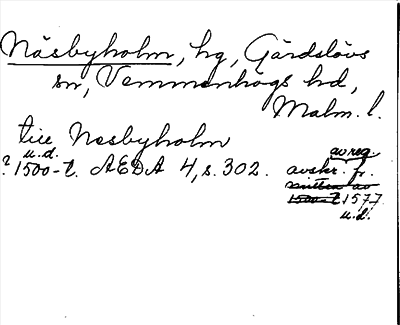 Näsbyholm, hg, Gärdslövs
sn, Vemmenhögs hd,
Malm. l.
till Nesbyholm
u.d.
? 1500-t. AEDA 4, s. 302.
av reg.
avskr. fr.
mitten av
1500-t 1577
u.d.